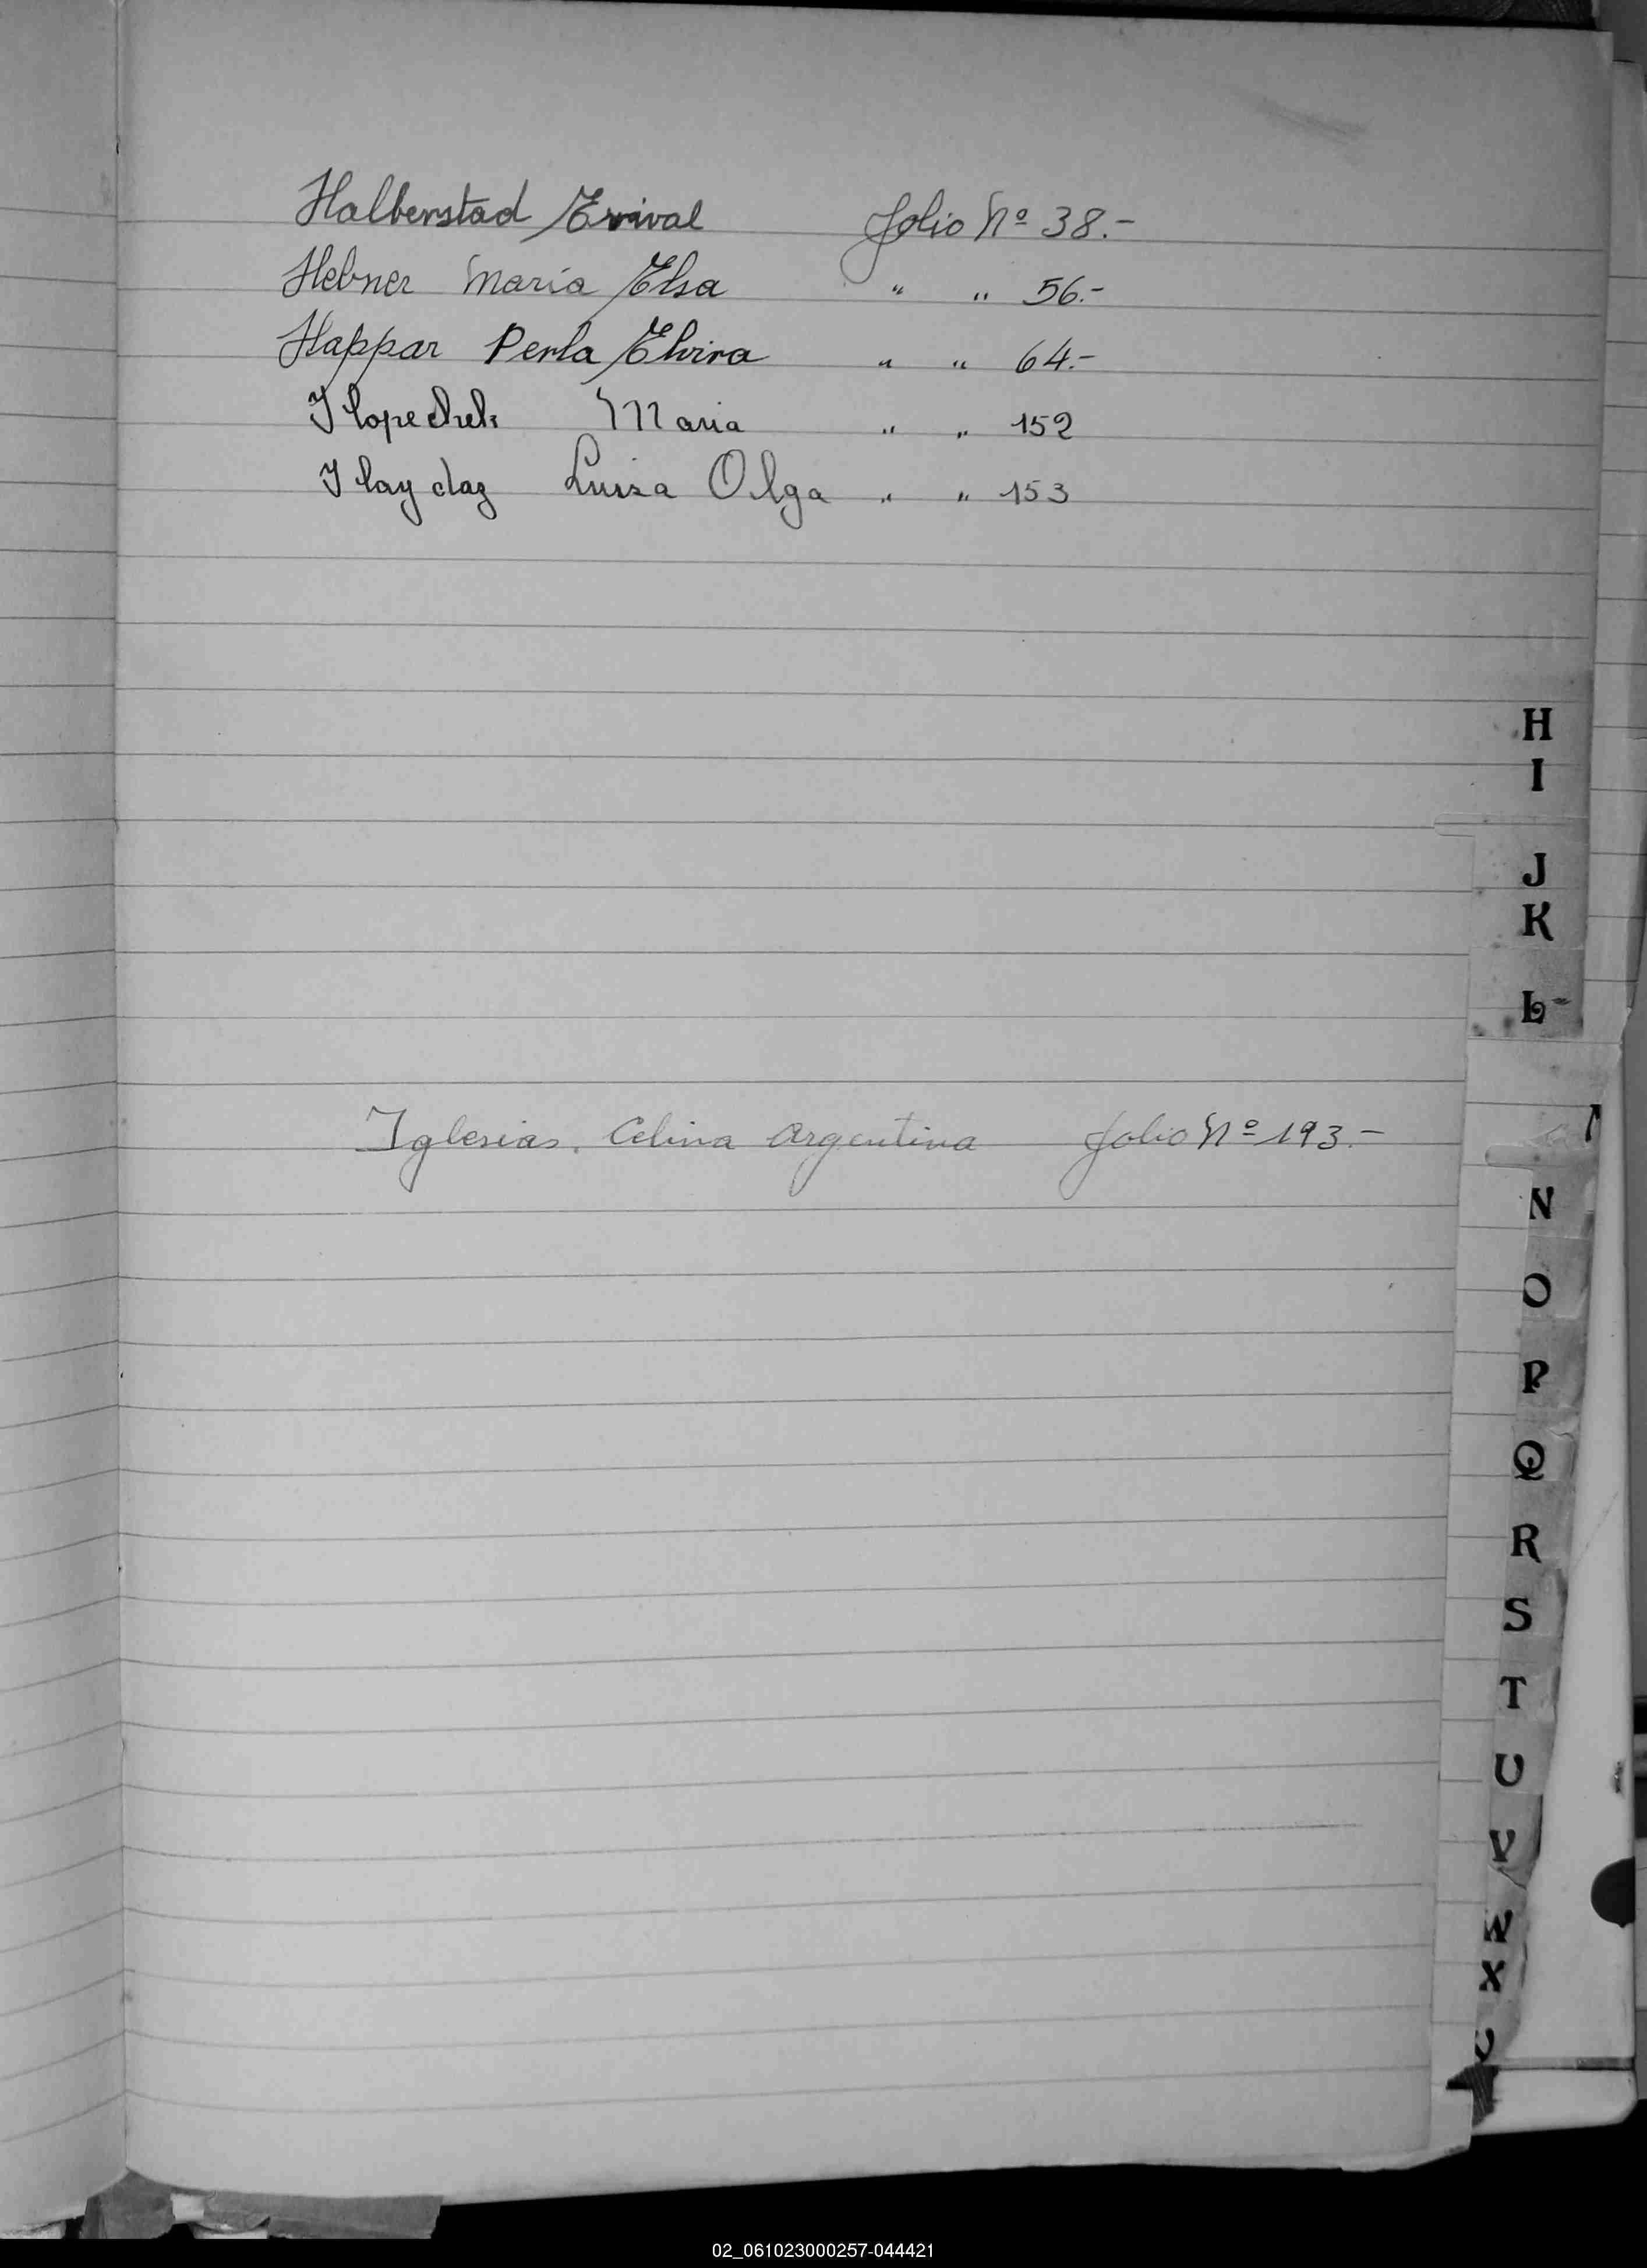 Halberstad Erival Folio Nº 38.-
Hebner Maria Elsa " " 56.-
Happar Perla Elvira " " 64.-
Maria " " 152
Luisa Olga " " 153
Iglesias, Celina Argentina Folio Nº 193.-
H
I
J
K
L
N
O
P
Q
R
S
T
U
V
W
X
02_061023000257-044421